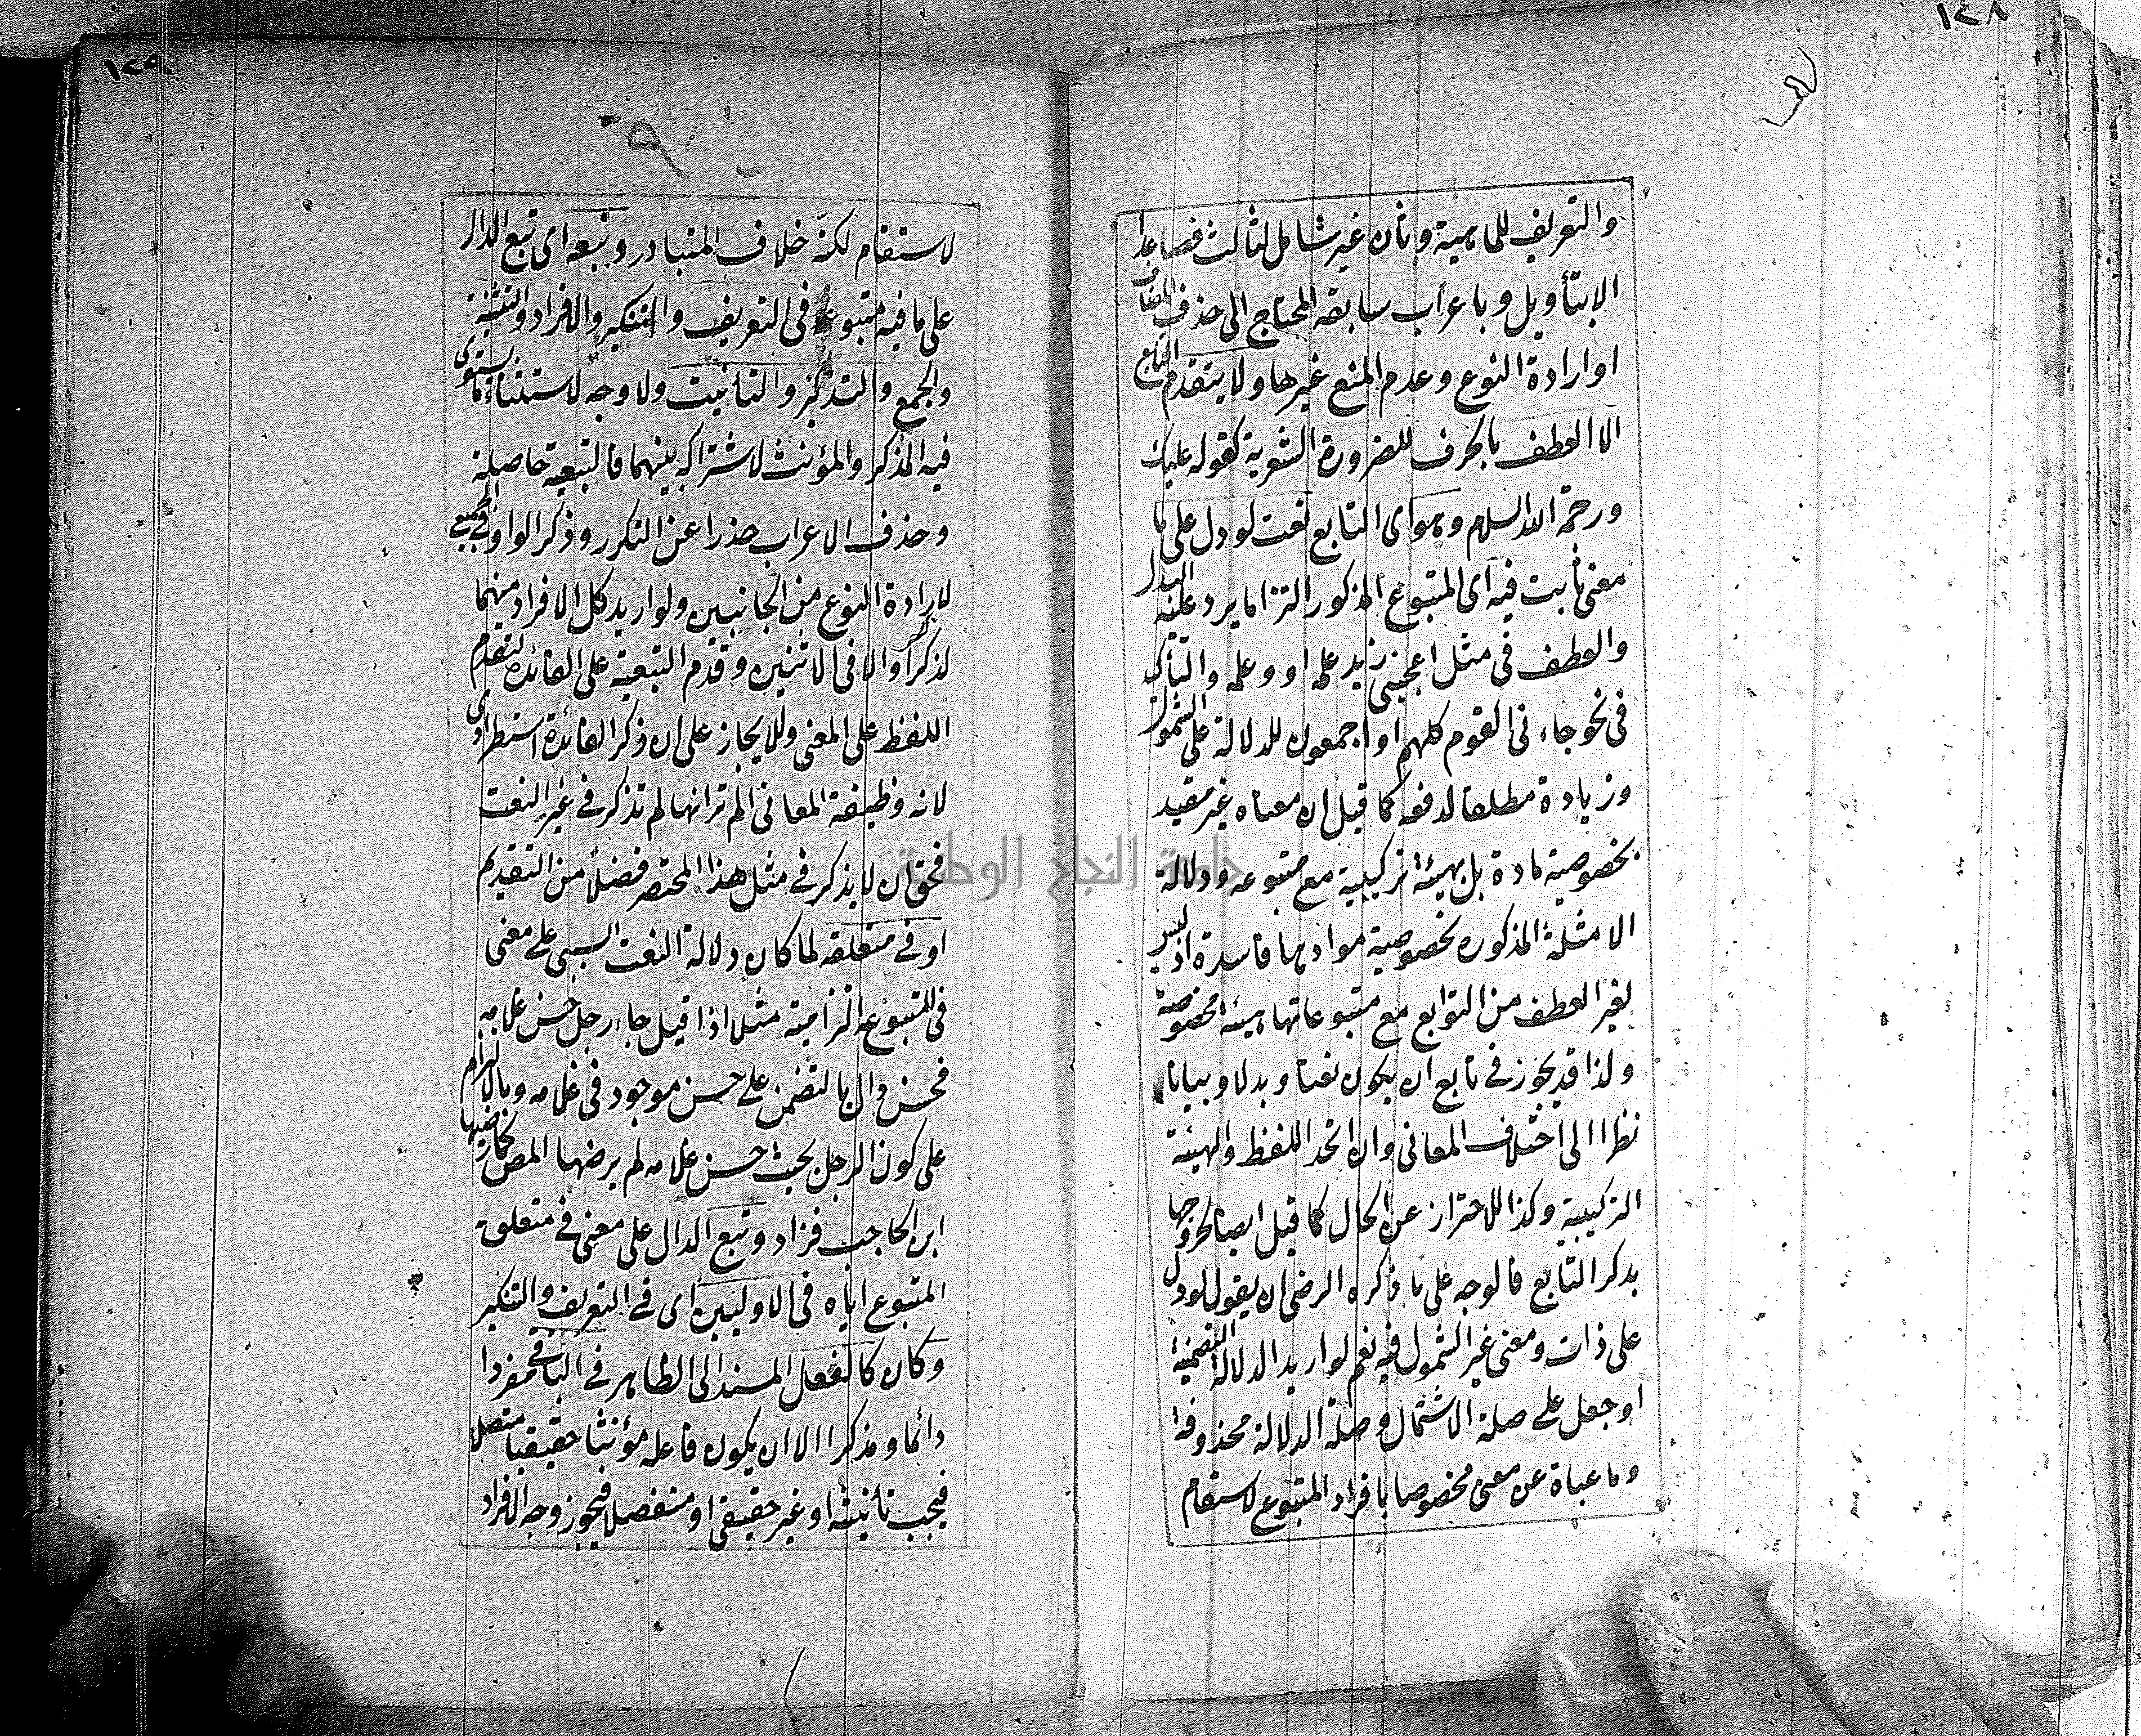 ١٢٨
والتعريف للماهية وثان غير شامل لثالث فصاعدا
الا بتأويل وباعراب سابقه المحتاج الى حذف المضاف
او ارادة النوع وعدم المنع غيرها ولا يتقدم التابع
الا العطف بالحرف للضرورة الشعرية كقوله عليك
ورحمة الله السلام وهو اى التابع نعت لو دل على ما
معنى ثابت فيه اى المتبوع المذكور التزاما يرد عليه البدل
والعطف فى مثل اعجبنى زيد علمه او وعلمه والتأكيد
فى نحو جاءنى القوم كلهم او اجمعون للدلالة على الشمول
وزيادة مطلقا لدفعه كما قيل ان معناه غير مقيد
بخصوصية مادة بل بهيئة تركيبية مع متبوعه ودلالة
الامثلة المذكوره بخصوصية موادها فاسدة اذ ليس
لغير العطف من التوابع مع متبوعاتها هيئة مخصوصة
ولذا قد يجوز فى تابع ان يكون نعتا وبدلا وبيانا
نظرا الى اختلاف المعانى وان اتحد اللفظ والهيئة
التركيبية وكذا للاحتراز عن الحال كما قيل ايضا لخروجها
بذكر التابع فالوجه على ما ذكره الرضى ان يقول لو دل
على ذات ومعنى غير الشمول فيه نعم لو اريد الدلالة التضمنية
او جعل على صلة الاشتمال وصلة الدلالة محذوفة
وما عباة عن معنى مخصوصا بافراد المتبوع لاستقام
١٢٩
لاستقام لكنه خلاف المتبادر وتبعه اى تبع الدال
على ما فيه متبوعه فى التعريف والتنكير والافراد والتثنية
والجمع والتذكير والتانيث ولا وجه لاستثناء ما يستوى
فيه المذكر والمؤنث لاشتراكه بينهما فالتبعية حاصلة
وحذف الاعراب حذرا عن التكرر وذكر الواو فى الجميع
لارادة النوع من الجانبين ولو اريد كل الافراد منهما
لذكر او الا فى الاثنين وقدم التبعية على الفائدة لتقدم
اللفظ على المعنى وللايجاز على ان ذكر الفائدة استطرادى
لانه وظيفة المعانى الم تر انها لم تذكر فى غير النعت
فحق ان لا يذكر فى مثل هذا المختصر فضلا من التقديم
او فى متعلقه لما كان دلالة النعت السببى على معنى
فى المتبوع التزامية مثلا اذا قيل جاء رجل حسن غلامه
فحسن دال بالتضمن على حسن موجود فى غلامه وبالالتزام
على كون الرجل بحيث حسن غلامه لم يرضها المص كما رضيها
ابن الحاجب فزاد وتبع الدال على معنى فى متعلق
المتبوع اياه فى الاوليين اى فى التعريف والتنكير
وكان كالفعل المسند الى الظاهر فى الباقى مفردا
دائما ومذكرا الا ان يكون فاعله مؤنثا حقيقيا متصلا
فيجب تانيثه او غير حقيقى او منفصلا فيجوز وجه الافراد
جامعة النجاح الوطنية